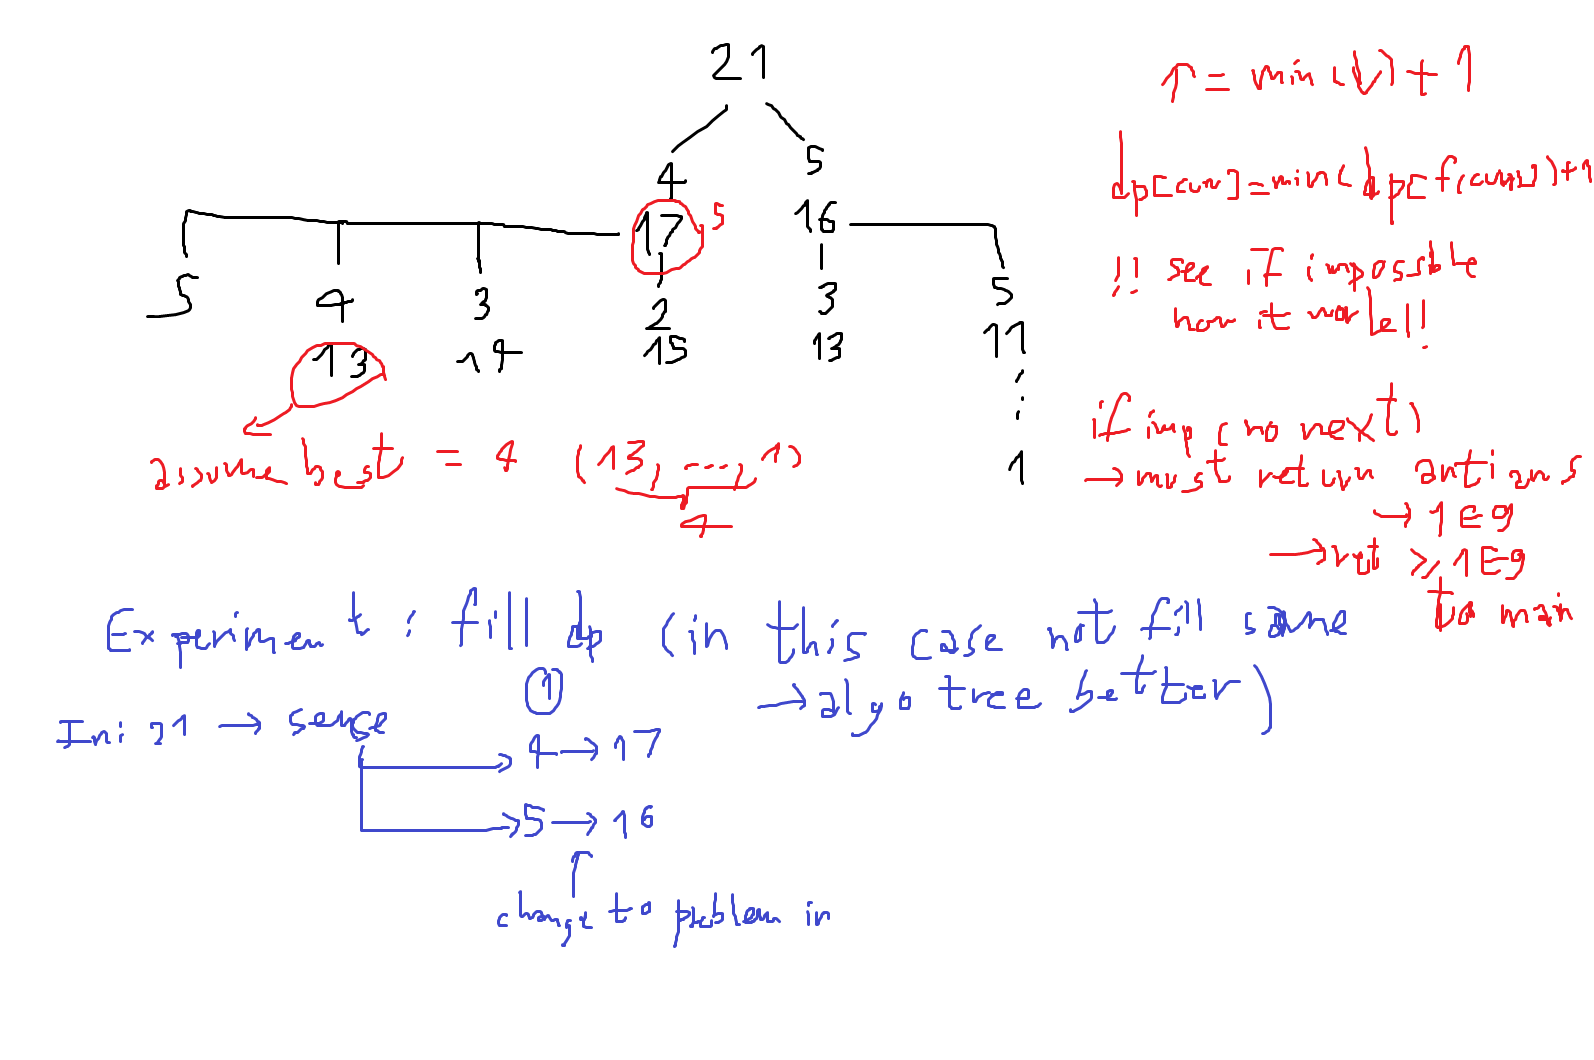 21
4 5
17 5 16
5 4 3 2 3 5
13 14 15 13 11
1
assume best = 4 (13, ..., 1)
4
↑ = min(↓) + 1
dp[cur] = min(dp[f(cur)]) + 1
!! see if impossble
how it work!!
if imp (no next)
→ must return antians
→ 1E9
→ ret ≥ 1E9
to main
Experiment : fill dp (in this case not fill same
→ algo tree better)
1
Ini 21 → sense
4 → 17
5 → 16
change to problem in